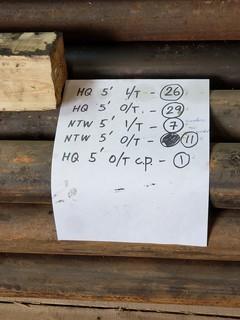 HQ 5' I/T - 26
HQ 5' O/T. - 29
NTW 5' I/T - 7
NTW 5' O/T - 11
HQ 5' O/T C.P. - 1